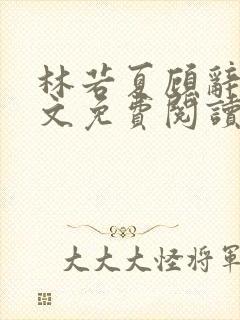 林若夏顾辭
文免費閱讀
大大大怪将軍